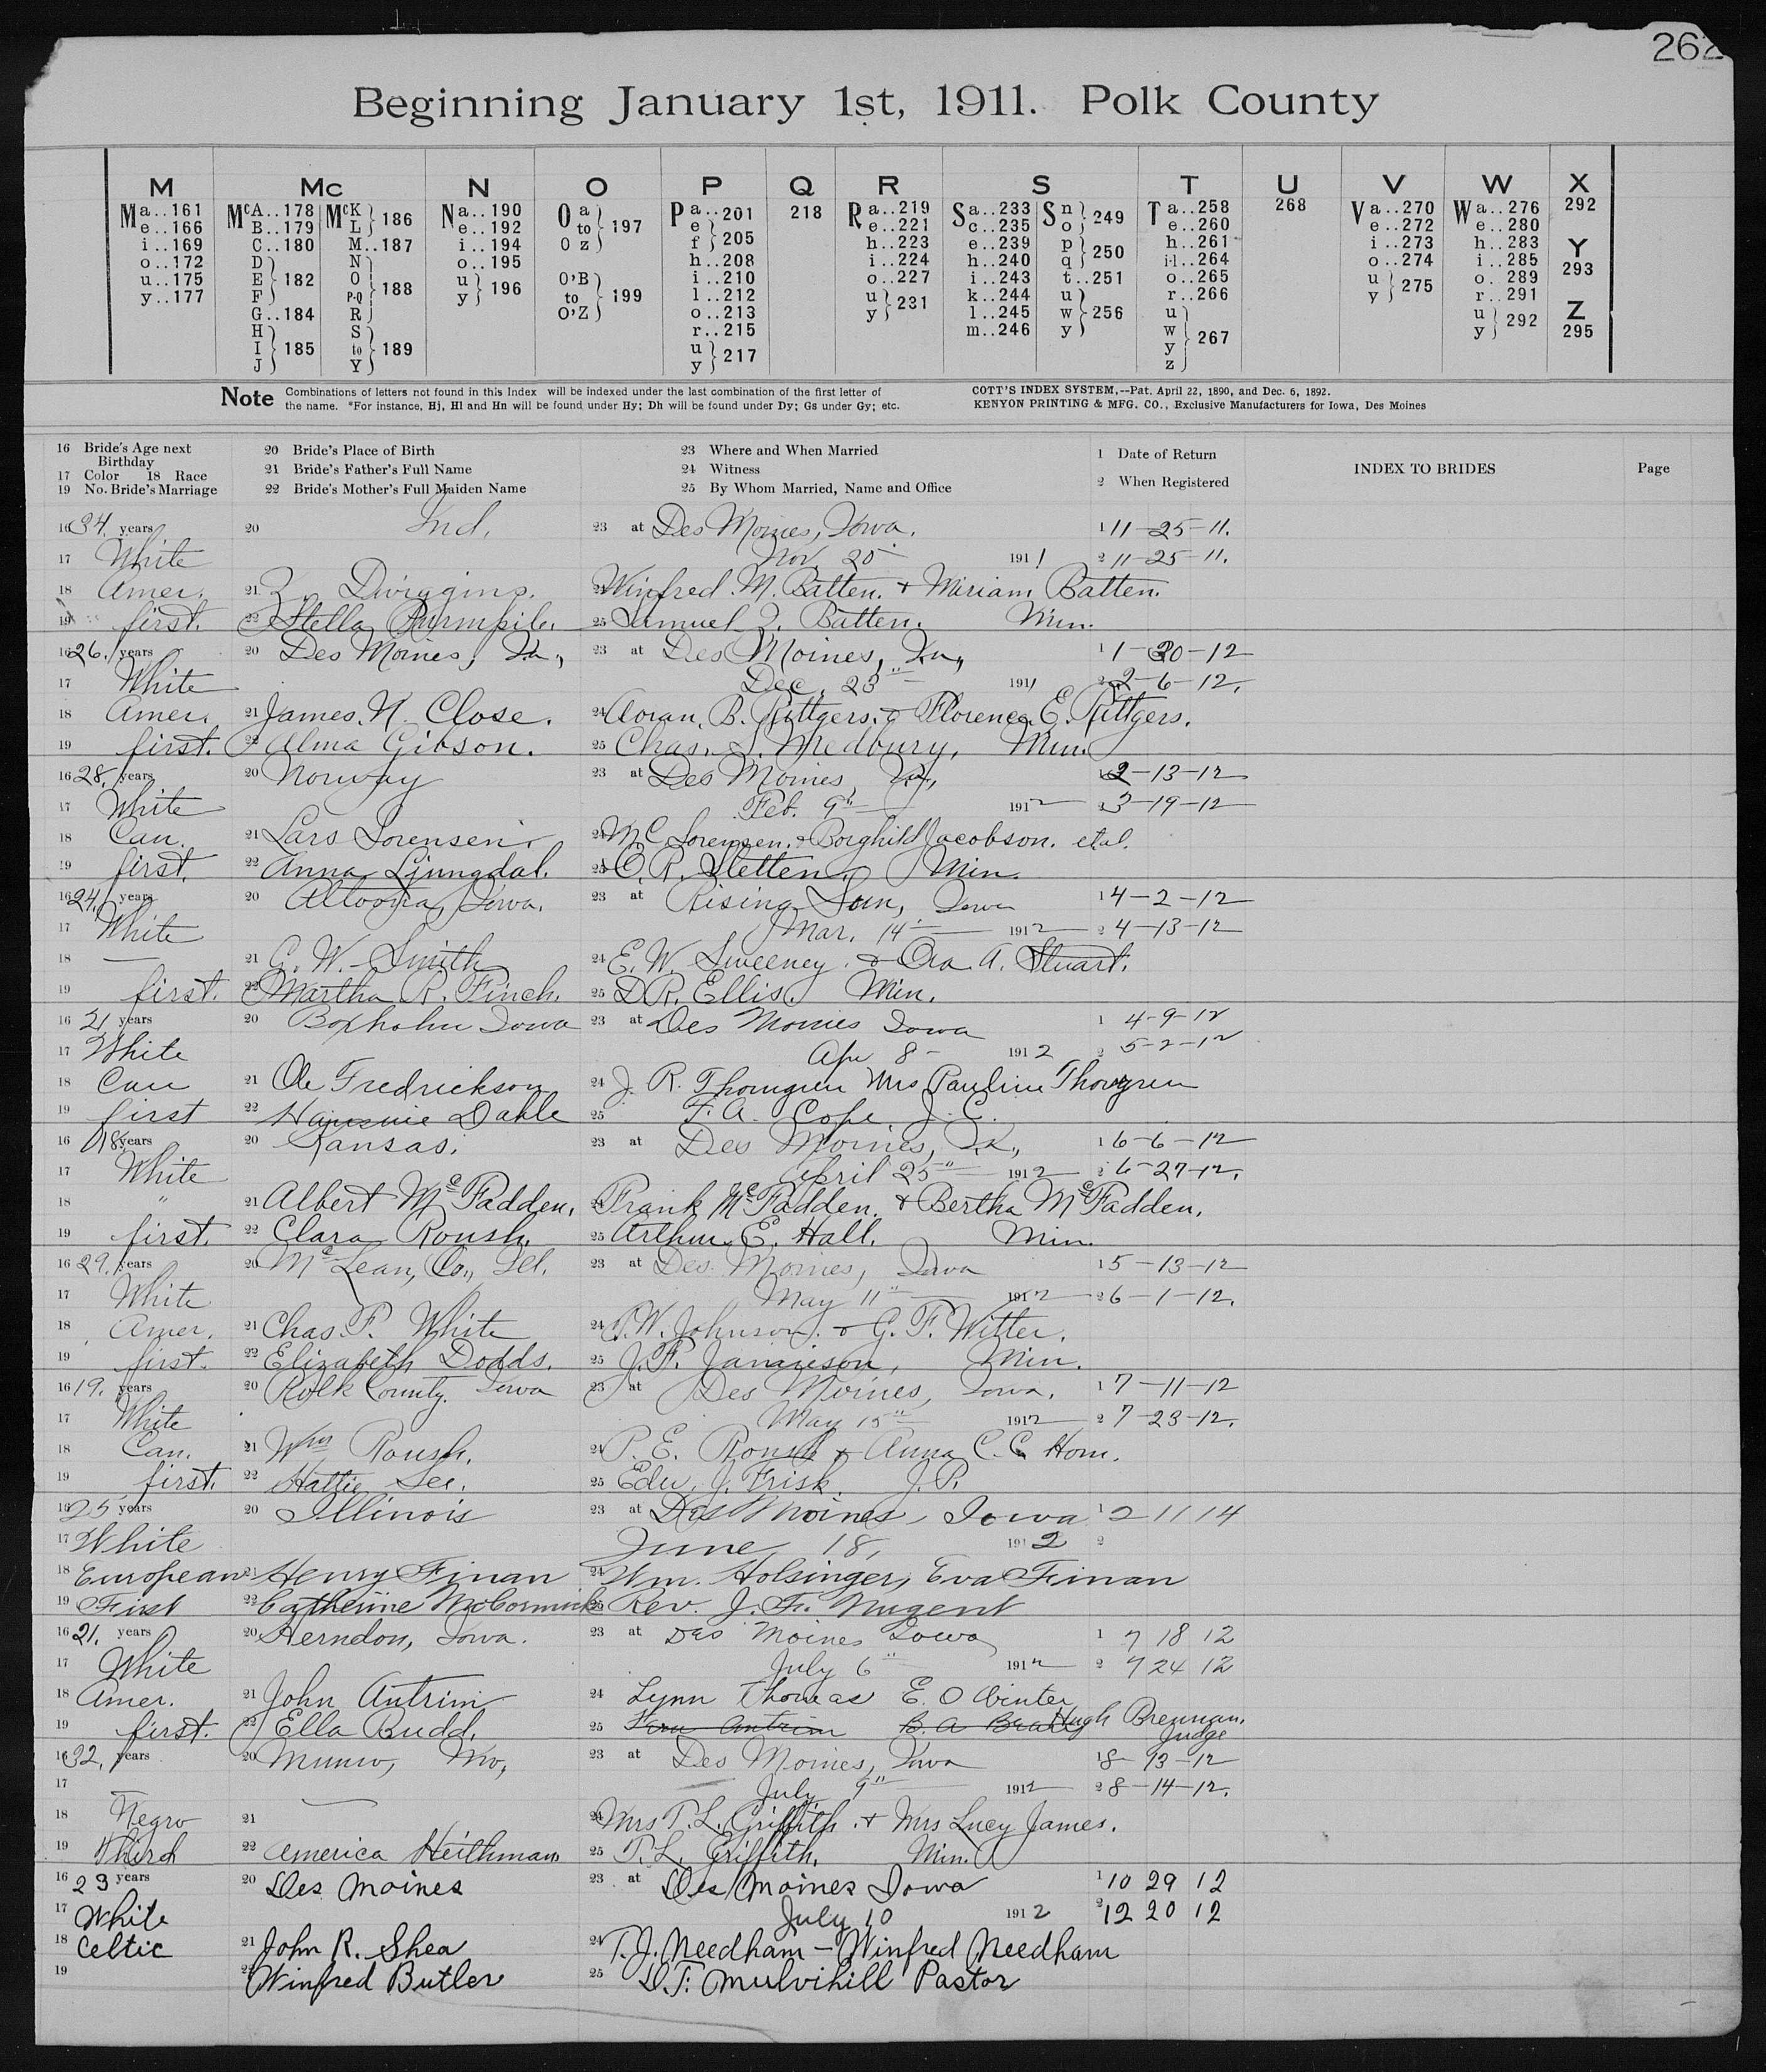 262
Beginning January 1st, 1911. Polk County
M Mc N O P Q R S T U V W X
Ma..161 McA..178 McK Na..190 Oa Pa..201 218 Ra..219 Sa..233 Sn Ta..258 268 Va..270 Wa..276 292
e..166 B..179 L } 186 e..192 to } 197 e e..221 c..235 o } 249 e..260 e..272 e..280
i..169 C..180 M..187 i..194 Oz f } 205 h..223 e..239 p h..261 i..273 h..283 Y
o..172 D N o..195 h..208 i..224 h..240 q } 250 i-l..264 o..274 i..285 293
u..175 E } 182 O u O'B i..210 o..227 i..243 t..251 o..265 u o..289
y..177 F P-Q } 188 y } 196 to } 199 l..212 u k..244 u r..266 y } 275 r..291 Z
G..184 R O'Z o..213 y } 231 l..245 w } 256 u u 295
H S r..215 m..246 y w } 267 y } 292
I } 185 to } 189 u y
J Y y } 217 z
Note Combinations of letters not found in this Index will be indexed under the last combination of the first letter of
the name. *For instance, Hj, Hl and Hn will be found under Hy; Dh will be found under Dy; Gs under Gy; etc.
COTT'S INDEX SYSTEM,--Pat. April 22, 1890, and Dec. 6, 1892.
KENYON PRINTING & MFG. CO., Exclusive Manufacturers for Iowa, Des Moines
16 Bride's Age next Birthday 20 Bride's Place of Birth 23 Where and When Married 1 Date of Return
17 Color 18 Race 21 Bride's Father's Full Name 24 Witness INDEX TO BRIDES Page
19 No. Bride's Marriage 22 Bride's Mother's Full Maiden Name 25 By Whom Married, Name and Office 2 When Registered
16 34. years 20 Ind. 23 at Des Moines, Iowa. 1 11-25-11.
17 White Nov. 20 1911 2 11-25-11.
18 Amer. 21 Z. Dwiggins. 24 Winfred. M. Batten. & Miriam Batten.
19 first. 22 Stella 25 Samuel Z. Batten. Min.
16 26. years 20 Des Moines, Ia., 23 at Des Moines, Ia., 1 1-30-12
17 White Dec. 23" 1911 2 2-6-12.
18 Amer. 21 James. N. Close. 24 B. Rittgers. & Florence. E. Rittgers.
19 first. 22 Alma Gibson. 25 Chas. S. Medbury, Min.
16 28. years 20 Norway 23 at Des Moines, Ia., 1 2-13-12
17 White Feb. 9th 1912 2 3-19-12
18 Cau. 21 Lars Sorensen. 24 M. C. Sorensen. & Borghild Jacobson. et al.
19 first. 22 Anna Ljungdal. 25 O. R. Sletten. Min.
16 24. years 20 Altoona, Iowa. 23 at Rising Sun, Iowa 1 4-2-12
17 White Mar. 14" 1912 2 4-13-12
18 — 21 G. W. Smith 24 E. W. Sweeney. & Ora A. Stuart.
19 first. 22 Martha R. Finch. 25 D. R. Ellis. Min.
16 21 years 20 Boxholm Iowa 23 at Des Moines Iowa 1 4-9-12
17 White Apr 8- 1912 2 5-2-12
18 Cau 21 Ole Fredrickson 24 J. R. Thorngren Mrs Pauline Thorngren
19 first 22 Dahle 25 F. A. Cope. J. P.
16 18. years 20 Kansas. 23 at Des Moines, Ia., 1 6-6-12
17 White April 25" 1912 2 6-27-12.
18 " 21 Albert McFadden. 24 Frank McFadden. & Bertha McFadden.
19 first. 22 Clara Roush. 25 Arthur E. Hall. Min.
16 29. years 20 McLean, Co., Ill. 23 at Des Moines, Iowa 1 5-13-12
17 White May 11" 1912 2 6-1-12.
18 Amer. 21 Chas. F. White 24 P. W. Johnson. & G. F. Witter.
19 first. 22 Elizabeth Dodds. 25 J. F. Jamieson, Min.
16 19. years 20 Polk County. Iowa 23 at Des Moines, Iowa. 1 7-11-12
17 White May 15" 1912 2 7-23-12.
18 Cau. 21 Wm Roush. 24 P. E. Roush & Anna C. C. Hom.
19 first. 22 Hattie Lee. 25 Edw. J. Frisk. J. P.
16 25 years 20 Illinois 23 at Des Moines, Iowa 1 2 11 14
17 White June 18, 1912 2
18 European 21 Henry Finan 24 Wm. Holsinger, Eva Finan
19 First 22 Catherine McCormick 25 Rev. J. F. Nugent
16 21. years 20 Herndon, Iowa. 23 at Des Moines Iowa 1 7 18 12
17 White July 6" 1912 2 7 24 12
18 Amer. 21 John Antrim 24 Lynn Thomas E. O Winter
19 first. 22 Ella Budd. 25 Antrim B. A Hugh Brennan. Judge
16 32. years 20 Mo, 23 at Des Moines, Iowa 1 8-13-12
17 — July 9" 1912 2 8-14-12.
18 Negro 21 24 Mrs T. L. Griffith. & Mrs Lucy James.
19 Third 22 America Heithman 25 T. L. Griffith. Min.
16 23 years 20 Des Moines 23 at Des Moines Iowa 1 10 29 12
17 White July 10 1912 2 12 20 12
18 Celtic 21 John R. Shea 24 T. J. Needham - Winfred Needham
19 22 Winfred Butler 25 D. F. Mulvihill Pastor